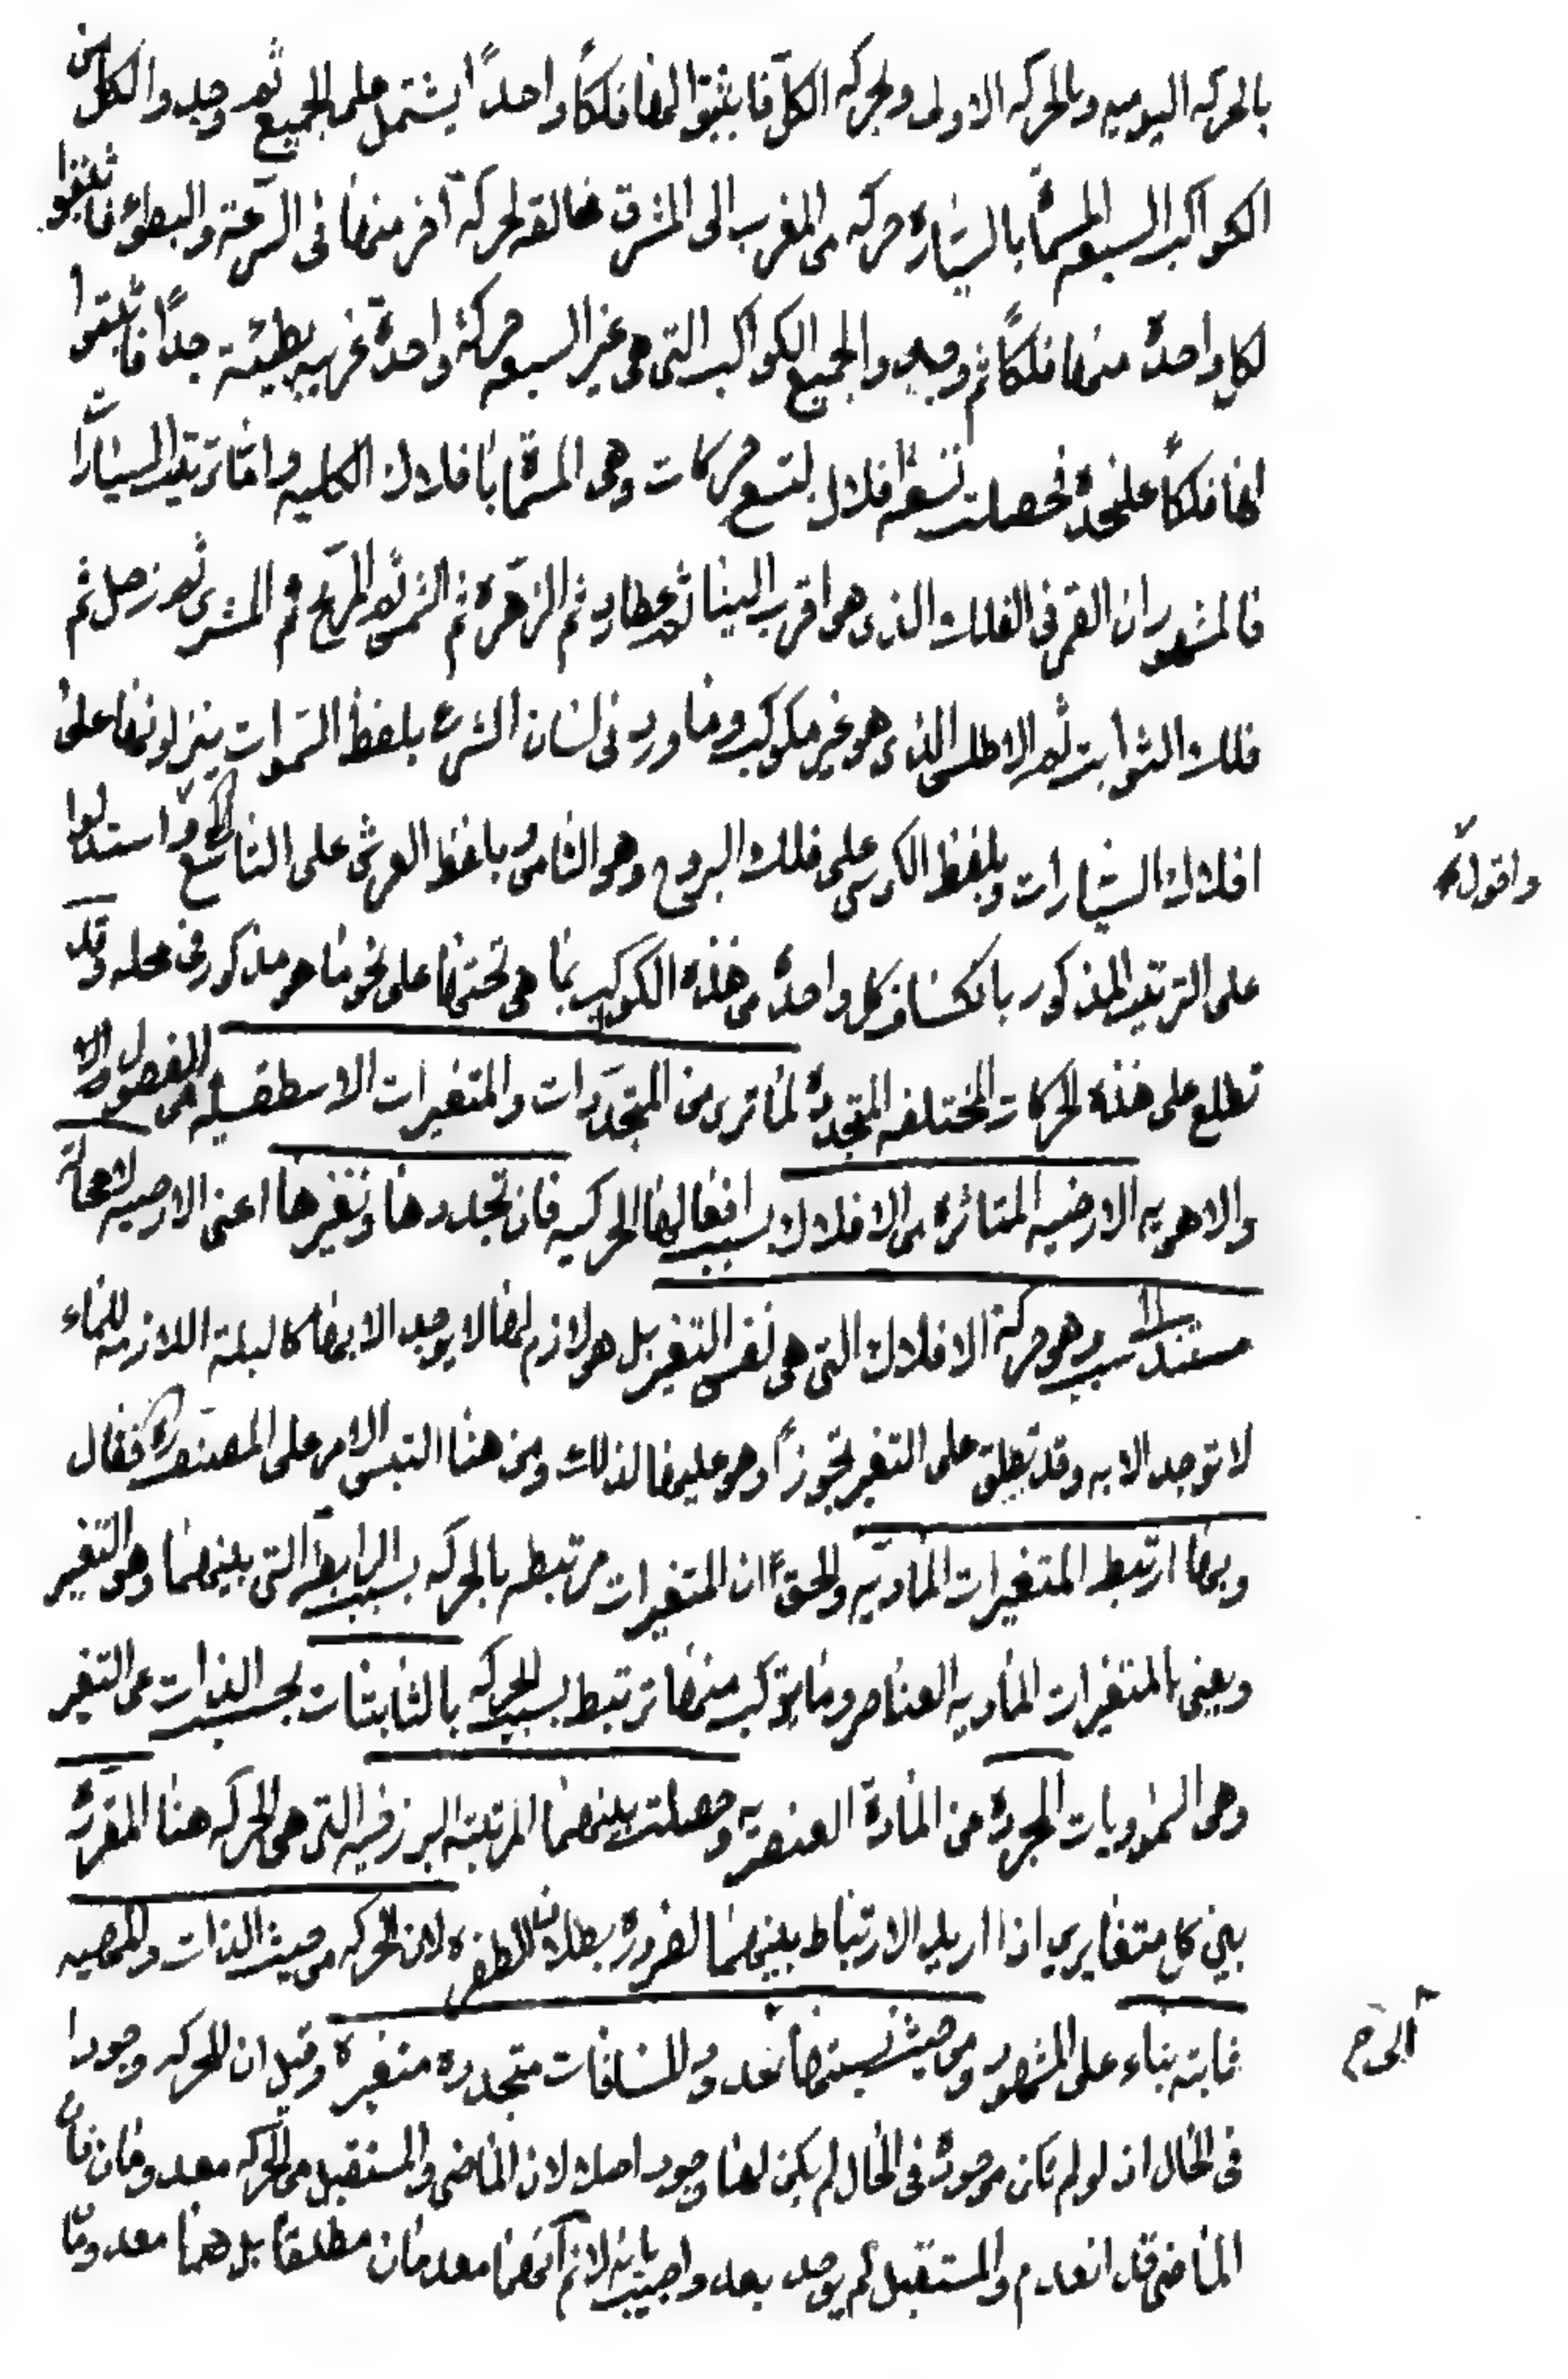 بالحركه اليوميه وبالحركه الاولى وبحركه الكل فاثبتوا لها فلكاً واحداً يشتمل على الجميع ثم وجدوا لكل من
الكواكب السبعه المسماة بالسيّاره حركه من المغرب الى المشرق مخالفه لحركة آخر منها فى السّرعة والبطوء فاثبتوا
لكل واحدة منها فلكاً ثم وجدوا لجميع الكواكب التى هى غير السبعه حركة واحدة غربيه بطيئة جداً فاثبتوا
لها فلكاً على حدة فحصلت تسعة افلاك لتسع حركات وهى المسمّاة بافلاك الكليه وامّا ترتيب السيّارات
فالمشهور ان القمر فى الفلك الذى هو اقرب الينا ثم عطارد ثم الزهرة ثم الشمس ثم المريخ ثم المشترى ثم زحل ثم
فلك الثوابت ثم الاطلس الذى هو غير مكوكب وما ورد فى لسان الشرع بلفظ السّموات ينزلونها على
افلاك السيّارات وبلفظ الكرسى على فلك البروج وهو الثامن وبلفظ العرش على التاسع واستدلوا
على الترتيب المذكور بانكساف كل واحدة من هذه الكواكب بما هى تحتها على نحو ما هو مذكور فى محله وقد
تطلع على هذه الحركات المختلفه المتجددة لما ترى من المتجدّدات والمتغيرات الاسطقسيه من الفصول الار
والاهويه الارضيه المتأثره من الافلاك بسبب افعالها الحركيه فان تجددها وتغيرها اعنى الارضيه لا محالة
مستند الى سبب وهو حركة الافلاك التى هى نفس التغير بل هو لازم لها لا يوجد الا بها كالبلة اللازمه للماء
لا توجد الا به وقد تطلق على التغير تجوزاً وهو عليها لذلك ومن هنا التبس الامر على المصنف فقال
وبها ارتبط المتغيرات الماديّه والحق ان المتغيرات مرتبطه بالحركه بسبب الرابطة التى بينهما وهو التغير
ويعنى بالمتغيرات الماديه العناصر وما يتركب منها ترتبط بسبب الحركه بالثابتات بحسب الذات عن التغير
وهى السموويات المجردة من المادة العنصريه وحصلت بينهما المرتبة البرزخيه التى هى الحركه هنا المقررة
بين كل متغايرين اذا اريد الارتباط بينهما لضرورة بطلان الطفره لان الحركه من حيث الذات والماهيه
ثابته بناء على المشهور ومن حيث نسبتها لحدود المسافات متجدده متغيره وقيل ان للحركه وجودا
فى الحال اذ لو لم تكن موجودة فى الحال لم يكن لها وجود اصلا لان الماضى والمستقبل من الحركه معدومان فان
الماضى قد انعدم والمستقبل لم يوجد بعد واجيب بانه لا نم انهما معدومان مطلقاً بل هما معدوما
واقول